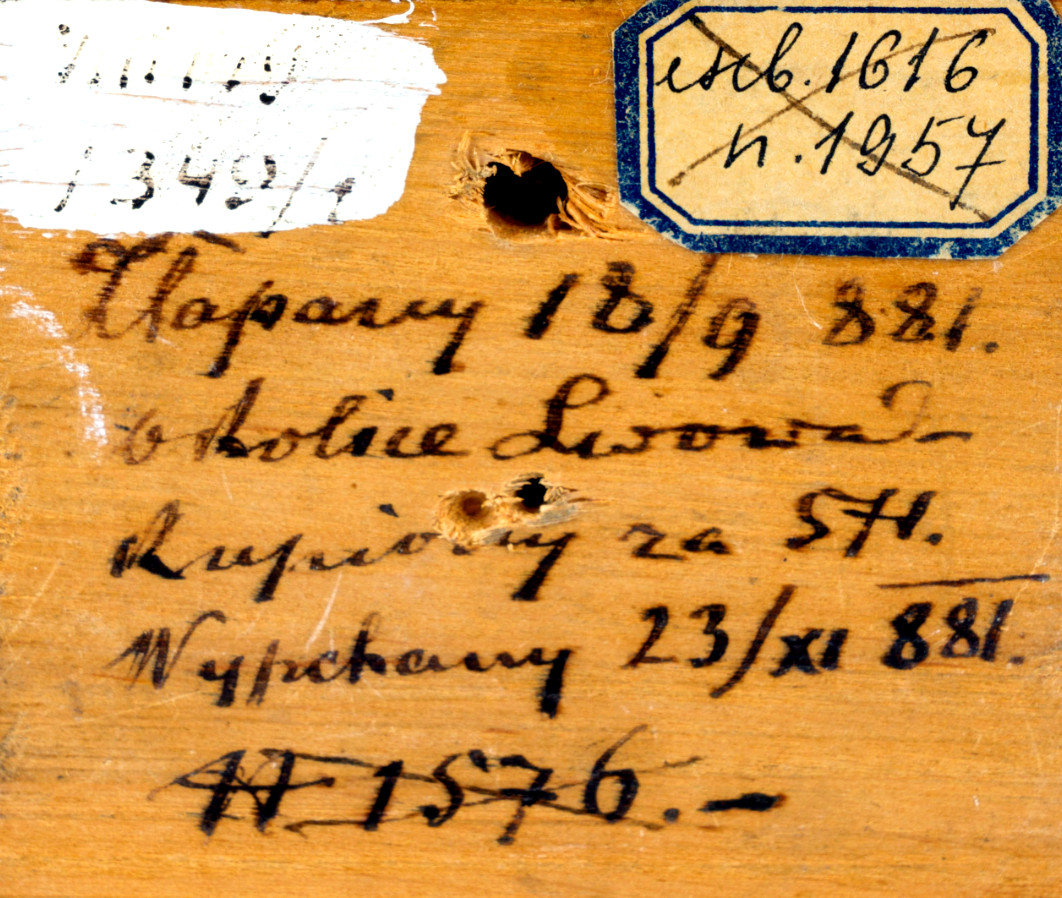 1349/1
escb. 1616
n. 1957
Złapany 18/9 881.
okolice Lwowa
Kupiony za 5 H.
Wypchany 23/XI 881.
1576. -